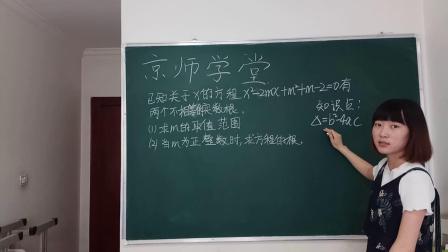 京师学堂
已知关于x的方程 x²-2mx+m²+m-2=0有
两个不相等实数根。
(1) 求m的取值范围
(2) 当m为正整数时，求方程的根。
知识点：
△=b²-4ac